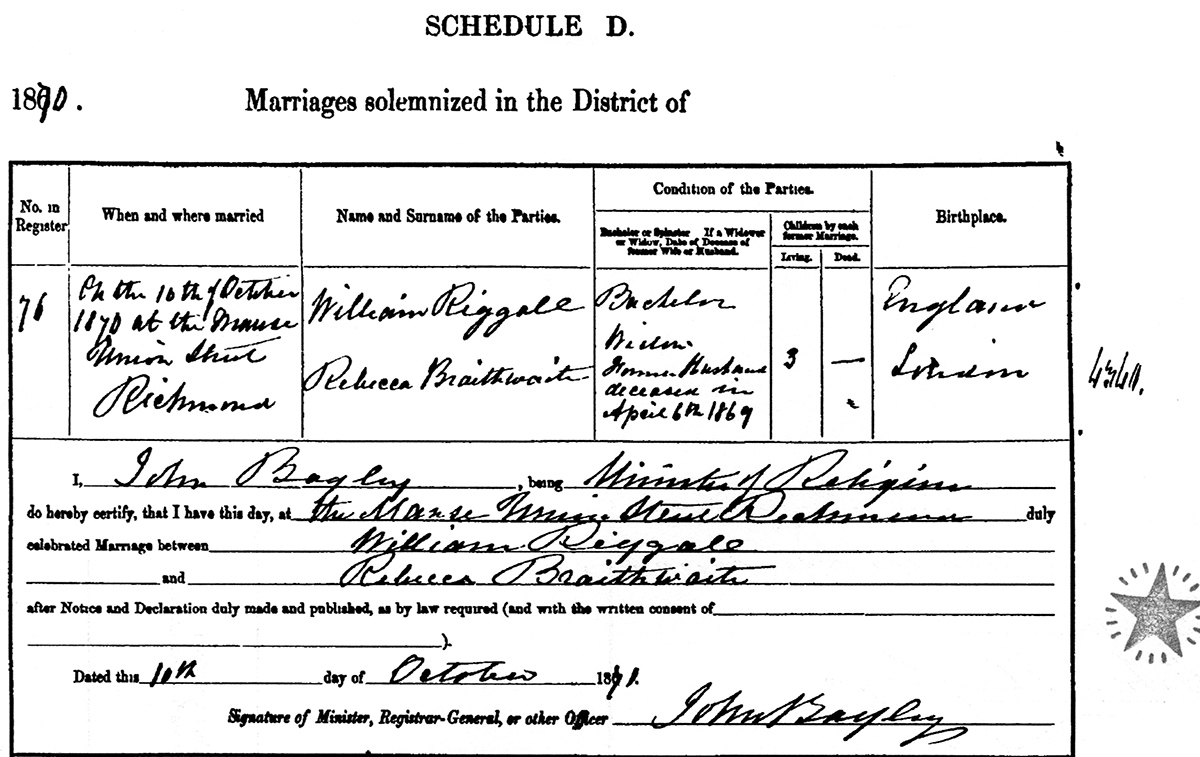 SCHEDULE D.
1870. Marriages solemnized in the District of
No. in Register
When and where married
Name and Surname of the Parties.
Condition of the Parties.
Bachelor or Spinster If a Widower
or Widow, Date of Decease of
former Wife or Husband.
Children by each
former Marriage.
Living. Dead.
Birthplace.
76
On the 10th of October
1870 at the Manse
Union Street
Richmond
William Riggall
Rebecca Braithwaite
Bachelor
Widow
Former Husband
deceased in
April 6th 1869
3 —
England
London
I, John Bagley, being Minister of Religion
do hereby certify, that I have this day, at the Manse Union Street Richmond duly
celebrated Marriage between William Riggall
and Rebecca Braithwaite
after Notice and Declaration duly made and published, as by law required (and with the written consent of
).
Dated this 10th day of October 1870.
Signature of Minister, Registrar-General, or other Officer John Bagley